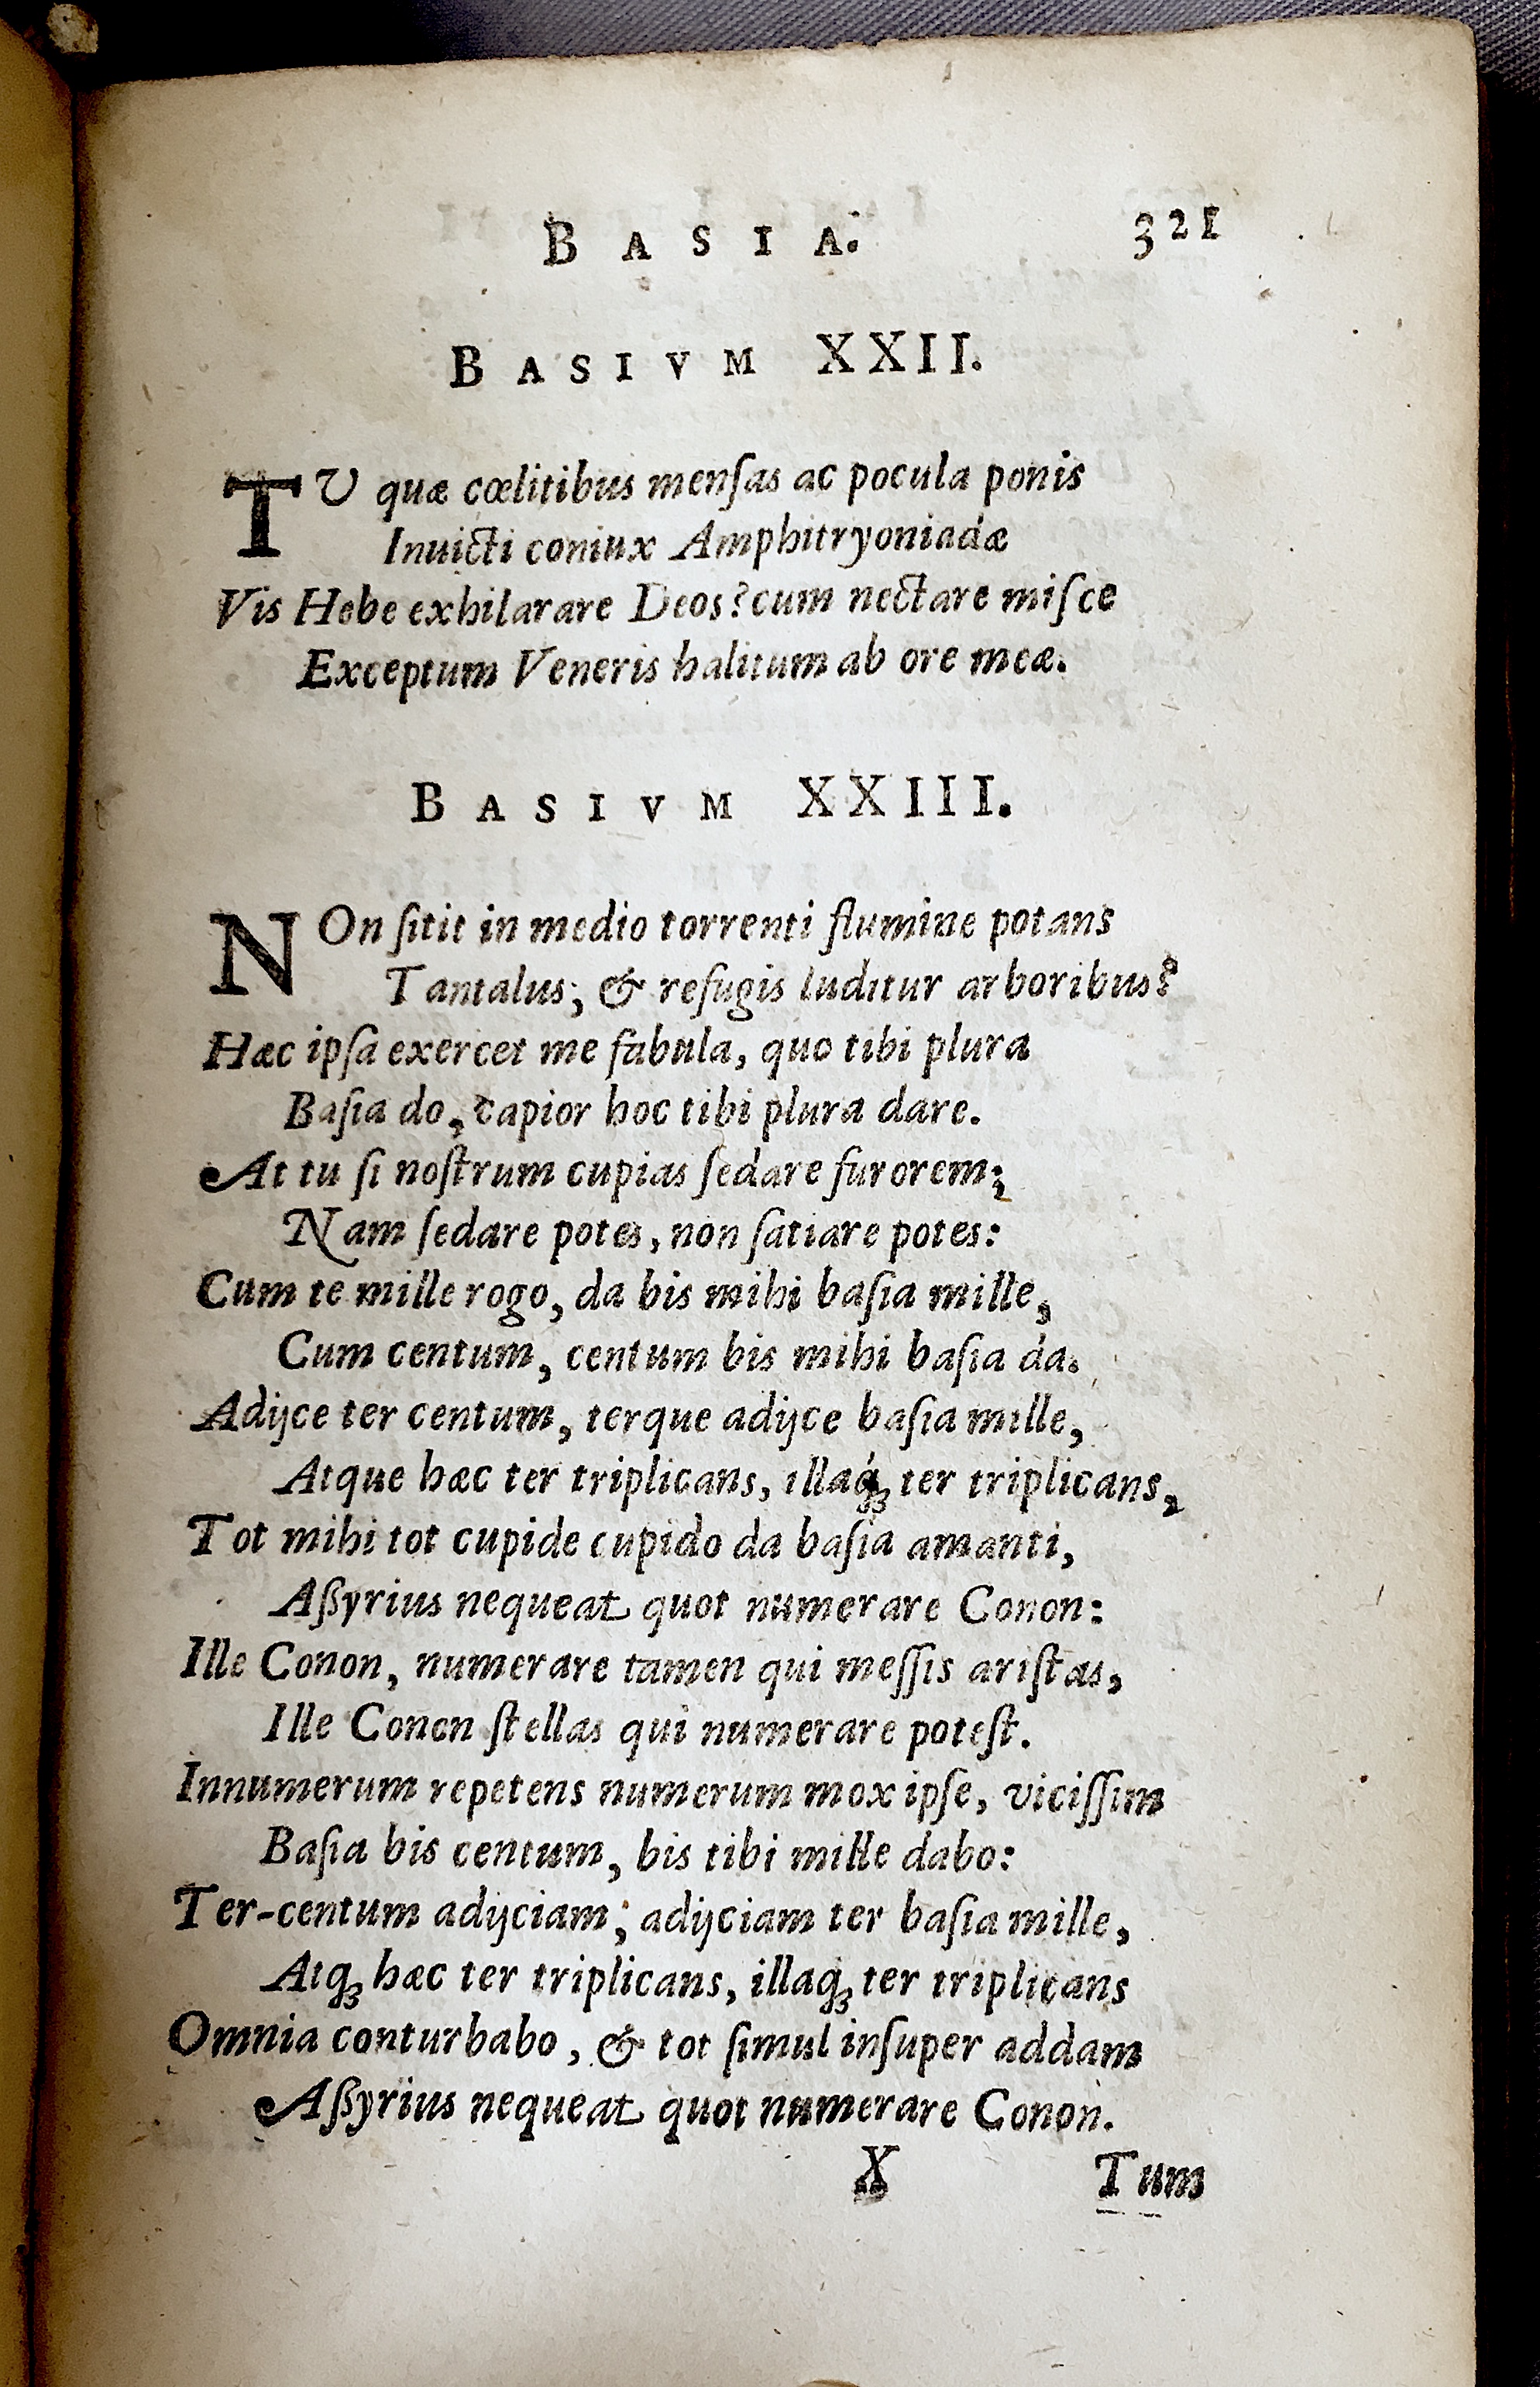 BASIA. 321
BASIVM XXII.
TV quæ cœlitibus menſas ac pocula ponis
Inuicti coniux Amphitryoniadæ
Vis Hebe exhilarare Deos? cum nectare miſce
Exceptum Veneris halitum ab ore meæ.
BASIVM XXIII.
NOn ſitit in medio torrenti flumine potans
Tantalus; & refugis luditur arboribus?
Hæc ipſa exercet me fabula, quo tibi plura
Baſia do, capior hoc tibi plura dare.
At tu ſi noſtrum cupias ſedare furorem;
Nam ſedare potes, non ſatiare potes:
Cum te mille rogo, da bis mihi baſia mille,
Cum centum, centum bis mihi baſia da.
Adijce ter centum, terque adijce baſia mille,
Atque hæc ter triplicans, illaq́ꝫ ter triplicans,
Tot mihi tot cupide cupido da baſia amanti,
Aßyrius nequeat quot numerare Conon:
Ille Conon, numerare tamen qui meſſis ariſtas,
Ille Conon ſtellas qui numerare poteſt.
Innumerum repetens numerum mox ipſe, viciſſim
Baſia bis centum, bis tibi mille dabo:
Ter-centum adijciam; adijciam ter baſia mille,
Atqꝫ hæc ter triplicans, illaqꝫ ter triplicans
Omnia conturbabo, & tot ſimul inſuper addam
Aßyrius nequeat quot numerare Conon.
X Tum